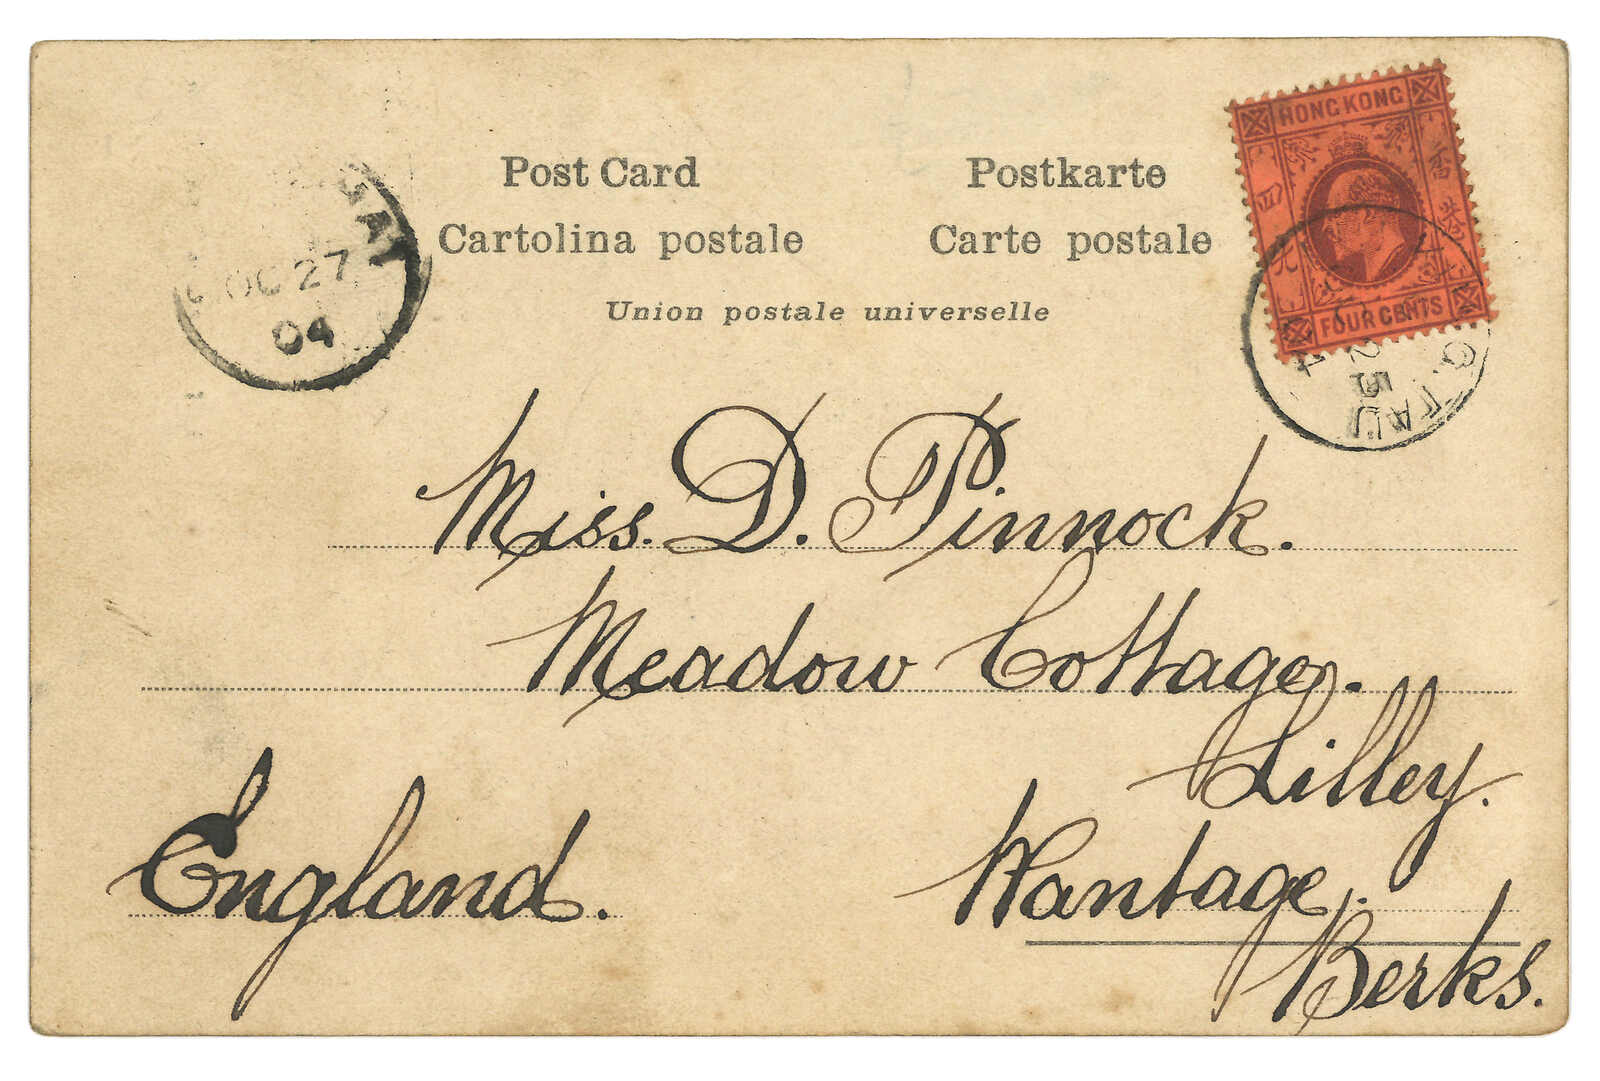 Post Card Postkarte
Cartolina postale Carte postale
Union postale universelle
HONG KONG
香港
四
FOUR CENTS
OC 27
04
25
Miss. D. Pinnock.
Meadow Cottage.
Lilley.
Wantage.
Berks.
England.